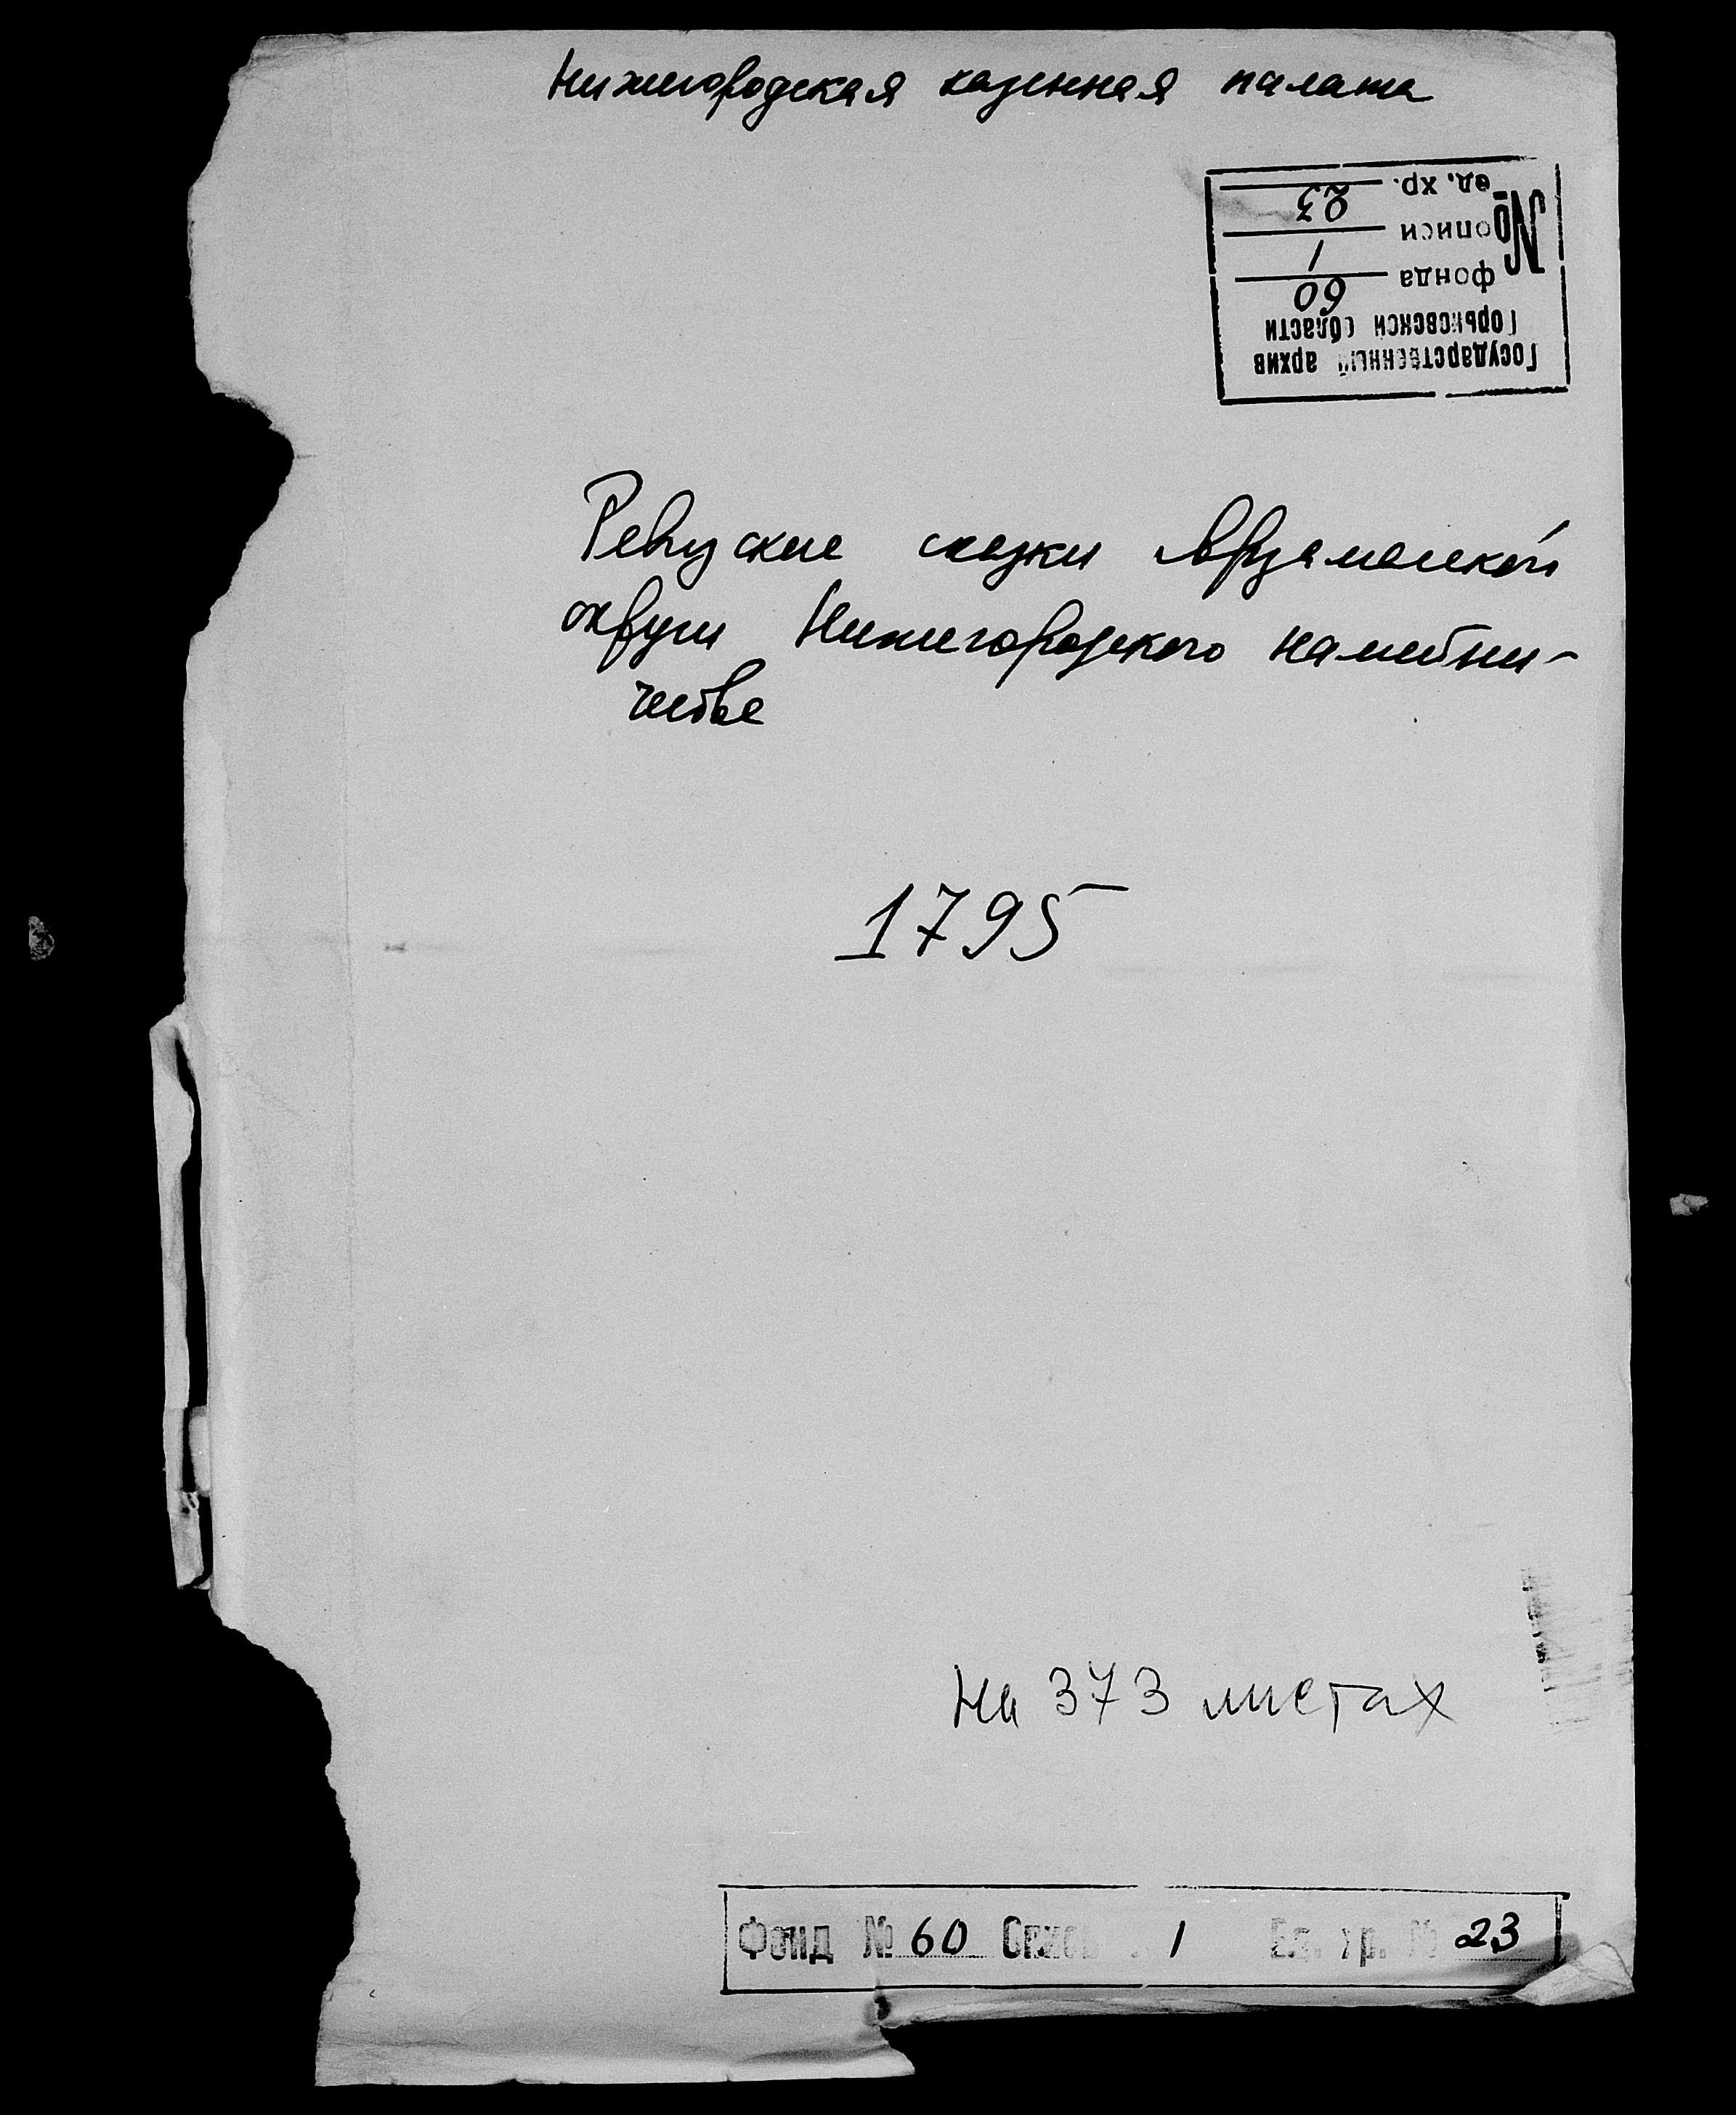 Нижегородская казенная палата
Государственный архив
Горьковской области
№ фонда 60
описи 1
ед. хр. 23
Ревизские сказки Арзамасской
округи Нижегородского наместни-
чества
1795
На 373 листах
Фонд № 60 Опись 1 Ед. хр. № 23